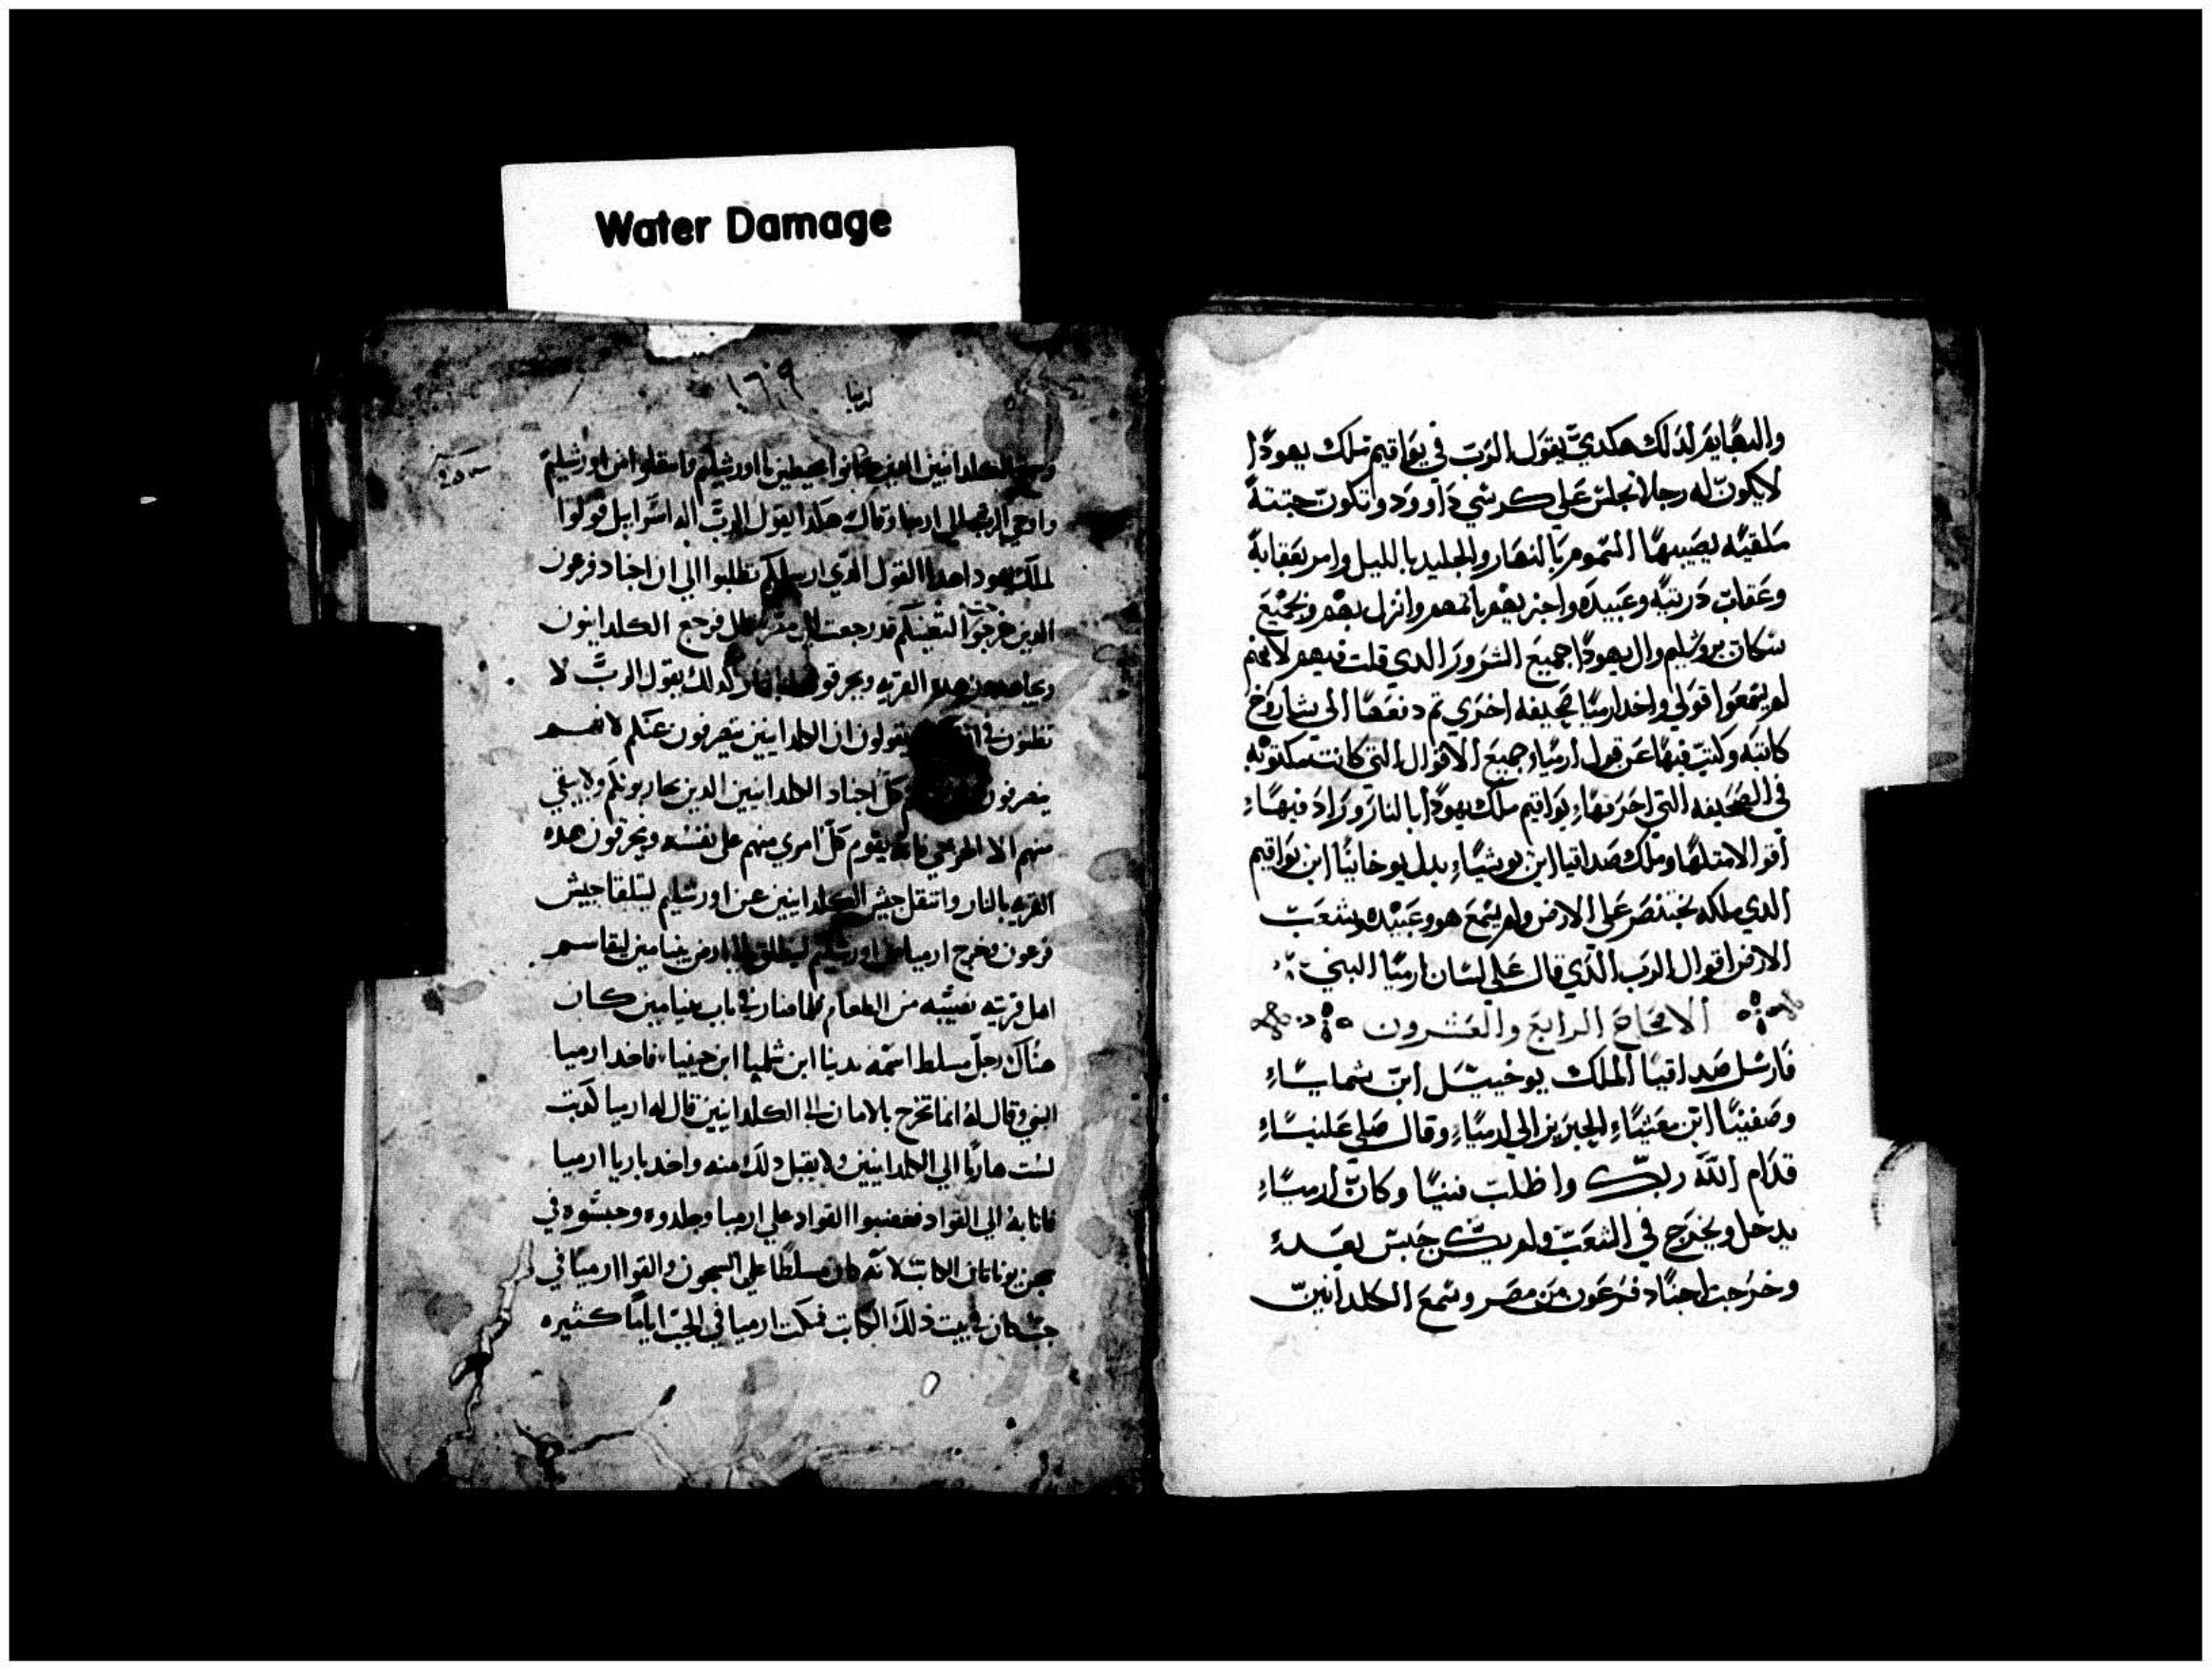 Water Damage
والبهايم لدلك هكدي يقول الرب في يواقيم ملك يهودا
لايكون له رجلا يجلس علي كرسي داوود وتكون جتته
ملقيه يصيبها السموم بالنهار والجليد بالليل وامر بعقابه
وعقاب دريته وعبيده واجزيهم باتمهم وانزل بهم وبجميع
سكان يروشليم وال يهودا جميع الشرور الدي قلت فيهم لانهم
لم يسمعوا قولي واخد ارميا صحيفه اخري تم دفعها الي بشاروخ
كاتبه وكتب فيها عن قول ارميا وجميع الاقوال التي كانت مكتوبه
في الصحيفه التي احرقها يواقيم ملك يهودا بالنار وزاد فيها
اقوالا متلها وملك صداقيا ابن يوشيا بدل يوخانيا ابن يواقيم
الدي ملكه بختنصر علي الارض ولم يسمع هو وعبيده وشعب
الارض اقوال الرب الذي قال علي لسان ارميا النبي
الاصحاح الرابع والعشرون
فارسل صداقيا الملك يوخيشل ابن شماسا
وصفنيا ابن معشيا الحبرين الي ارميا وقال صلي علينا
قدام الله ربك واطلب فينا وكان ارميا
يدخل ويخرج في الشعب ولم يكن حبس بعد
وخرجت اجناد فرعون من مصر وسمع الكلدانين
١٦٩
ارميا
الكلدانيين الدين كانوا محيطين باورشليم وانتقلوا من اورشليم
واوحي الرب الي ارميا وقال هكدا يقول الرب اله اسرايل قولوا
لملك يهودا هدا القول الدي ارسلكم تطلبوا الي ان اجناد فرعون
الدين خرجوا لتعينكم قد رجعت الي مصر فرجع الكلدانيون
هده القريه ويحرقوها بالنار لدلك يقول الرب لا
تظنون في يقولون ان الكلدانيين ينصرفون عنكم لانهم
ينصرفون كل اجناد الكلدانيين الدين يحاربونكم ولا يبقي
منهم الا الجرحي فانه يقوم كل امري منهم علي نفسه ويحرقون هده
القريه بالنار وانتقل جيش الكلدانيين عن اورشليم ليتلقا جيش
فرعون وخرج ارميا من اورشليم لينطلق الي ارض بنيامين ليقاسم
اهل قريته نصيبه من الطعام فلما صار في باب بنيامين كان
هناك رجل مسلط اسمه يدنيا ابن شلميا ابن حننيا فاخد ارميا
النبي وقال له انما تخرج بالامان الي الكلدانيين قال له ارميا كدبت
لست هاربا الي الكلدانيين ولا يقبل دلك منه واخد ياريا ارميا
فاتا به الي القواد فغضبوا القواد علي ارميا وجلدوه وحبسوه في
سجن يوناتان الكاتب لانه كان مسلطا علي السجون والقوا ارميا في
جب كان في بيت ذلك الكاتب فمكت ارميا في الجب اياما كتيره